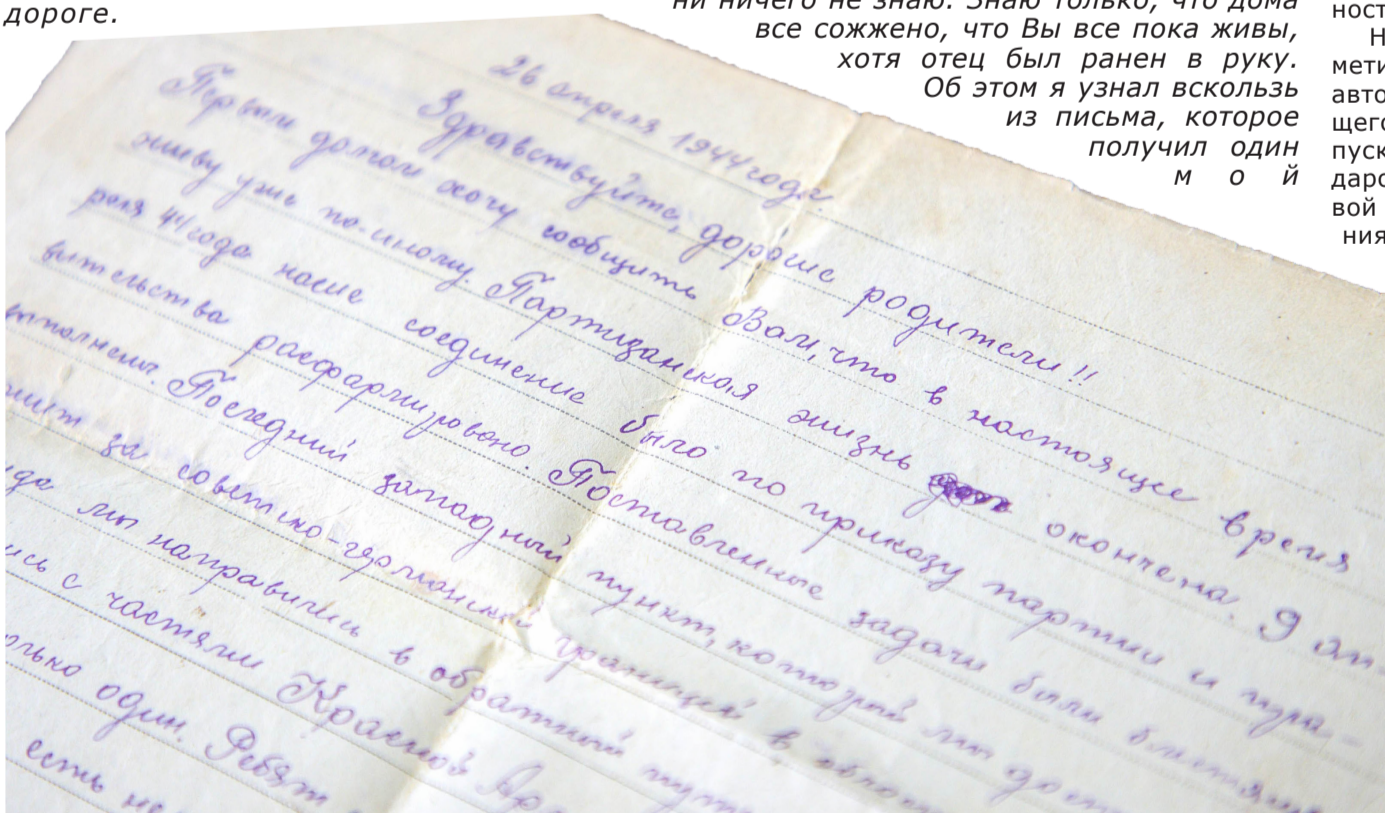 дороге.
ни ничего не знаю. Знаю только, что дома
все сожжено, что Вы все пока живы,
хотя отец был ранен в руку.
Об этом я узнал вскользь
из письма, которое
получил один
мой
ност
Н
мети
авто
щего
пуск
даро
вой
ния
26 апреля 1944 года.
Здравствуйте, дорогие родители!!
Первым долгом хочу сообщить Вам, что в настоящее время
живу уже по-иному. Партизанская жизнь окончена. 9 ап
реля 44 года наше соединение было по приказу партии и пра-
вительства расфармировано. Поставленные задачи были блестяще
выполнены. Последний западный пункт, который мы дост
за советско-германской границей в
да мы направились в обратный путь
ись с частями Красной Ар
олько один. Ребят
есть не